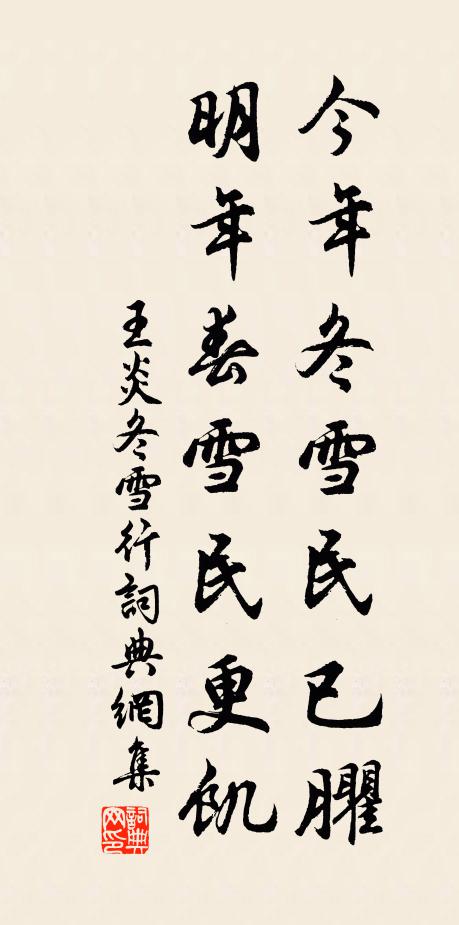 今年冬雪民已臞
明年春雪民更飢
王炎冬雪行詞典網集
詞典網印